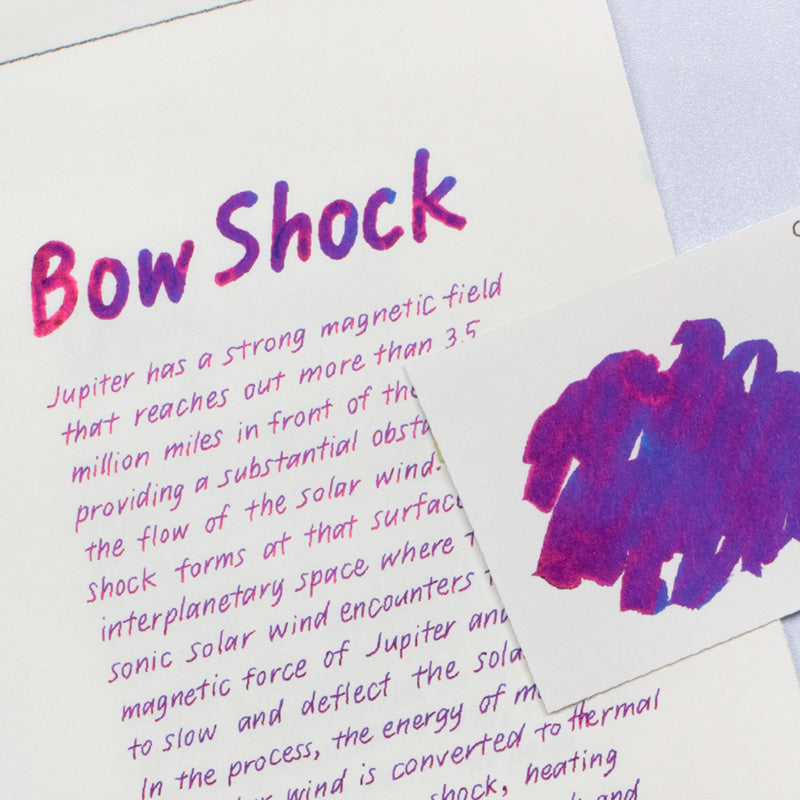 Bow Shock
Jupiter has a strong magnetic field
that reaches out more than 3.5
million miles in front of the
providing a substantial
the flow of the solar wind.
shock forms at that
interplanetary space where
sonic solar wind encounters
magnetic force of Jupiter
to slow and deflect the
In the process, the energy of
wind is converted to thermal
shock, heating
and